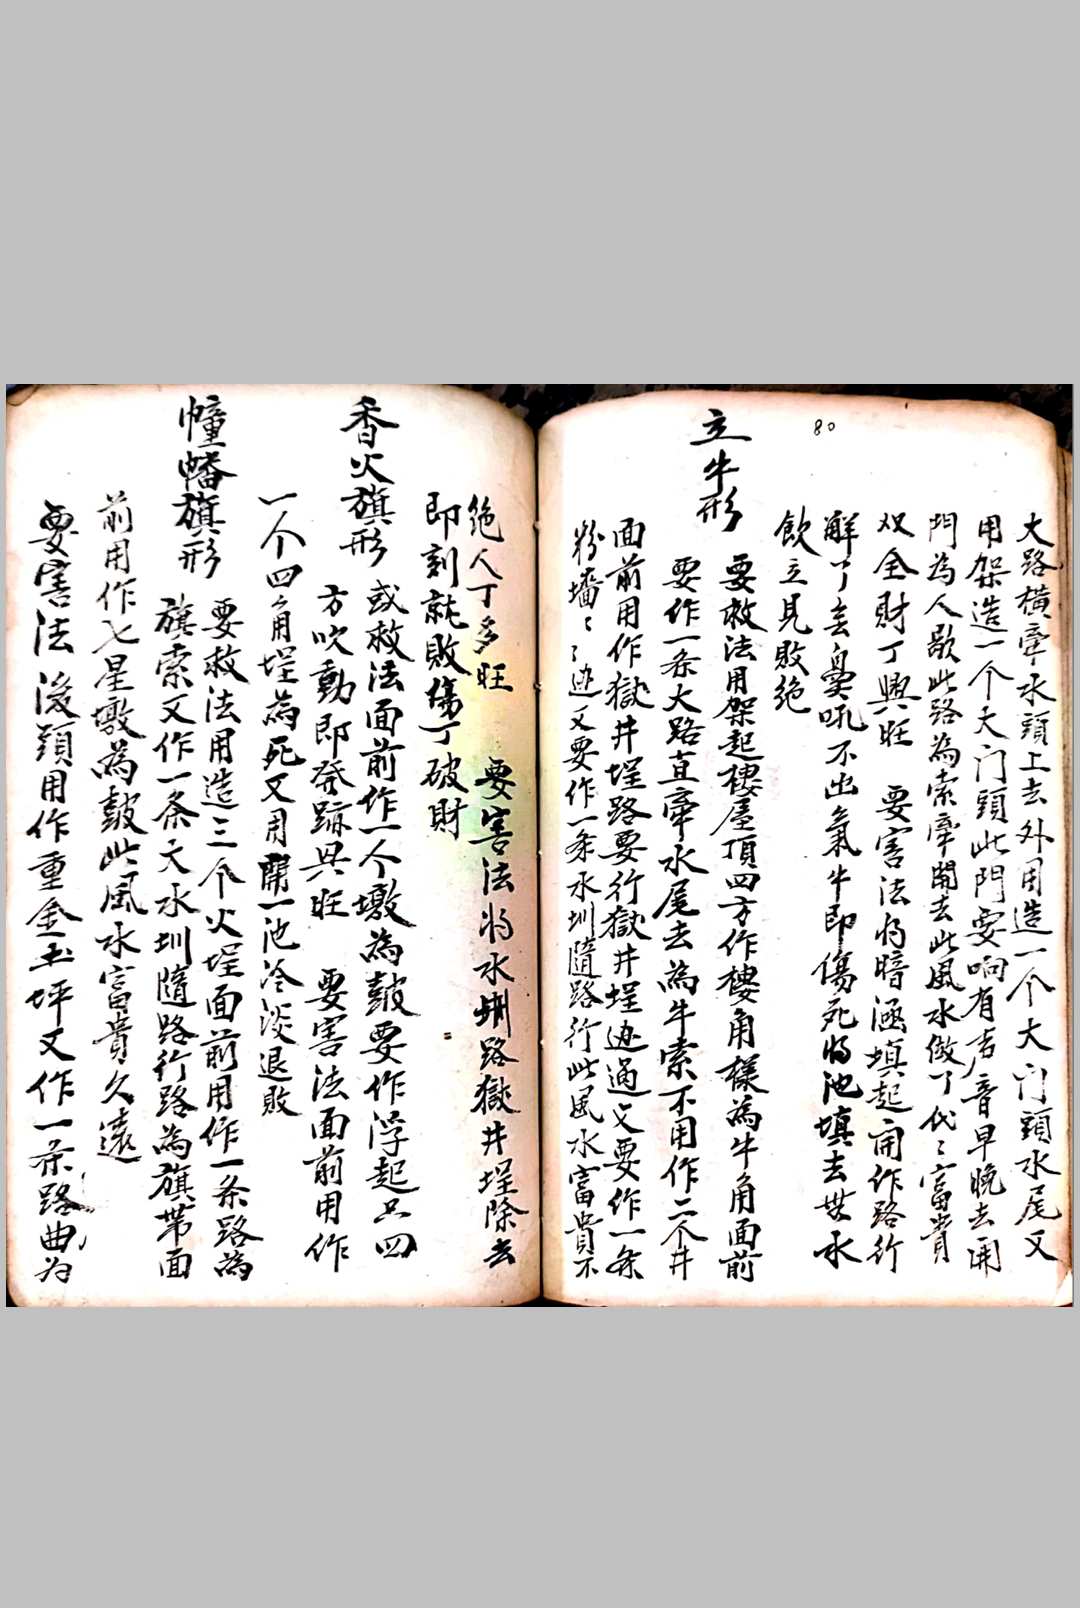 80
大路橫牽水頭上去外用造一个大门頭水尾又
用架造一个大门頭此門要响有声音早晚去開
門為人歇此路為索牽開去此風水做了代〻富貴
双全財丁興旺 要害法将暗涵填起開作路行
解了去臭吼不出氣牛即傷死将池填去無水
飲立見敗絶
立牛形
要救法用架起樓屋頂四方作樓角樣為牛角面前
要作一条大路直牽水尾去為牛索不用作二个井
面前用作獄井埕路要行獄井埕边過又要作一条
粉墻〻〻边又要作一条水圳隨路行此風水富貴不
絶人丁多旺 要害法将水圳路獄井埕除去
即刻就敗傷丁破財
香火旗形
或救法面前作一个墩為皷要作浮起只四
方吹動即發跡興旺 要害法面前用作
一个四角埕為死又用開一池冷淡退敗
幢幡旗形
要救法用造三个火埕面前用作一条路為
旗索又作一条大水圳隨路行路為旗帶面
前用作七星墩為皷此風水富貴久遠
要害法 後頭用作重金土坪又作一条路曲为